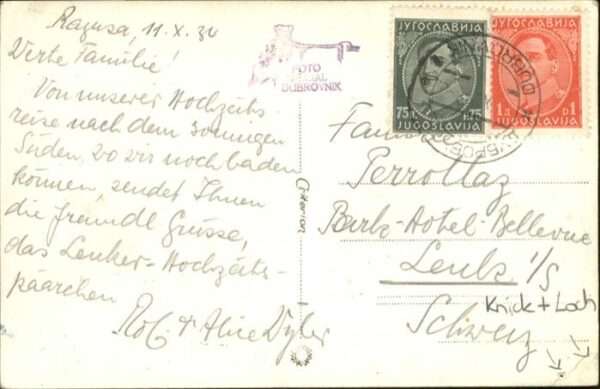 Ragusa, 11.X.34
Werte Familie!
Von unserer Hochzeits
reise nach dem sonnigen
Süden, wo wir noch baden
können, sendet Ihnen
die freundl Grüsse,
das Lenker-Hochzeits-
päärchen
Rob & Alice Wyler
FOTO
DUBROVNIK
ЈУГОСЛАВИЈА
75
75
JUGOSLAVIJA
ЈУГОСЛАВИЈА
1
1
JUGOSLAVIJA
Criterion
Perrollaz
Park-Hotel-Bellevue
Lenk i/S
Knick + Loch
Schweiz